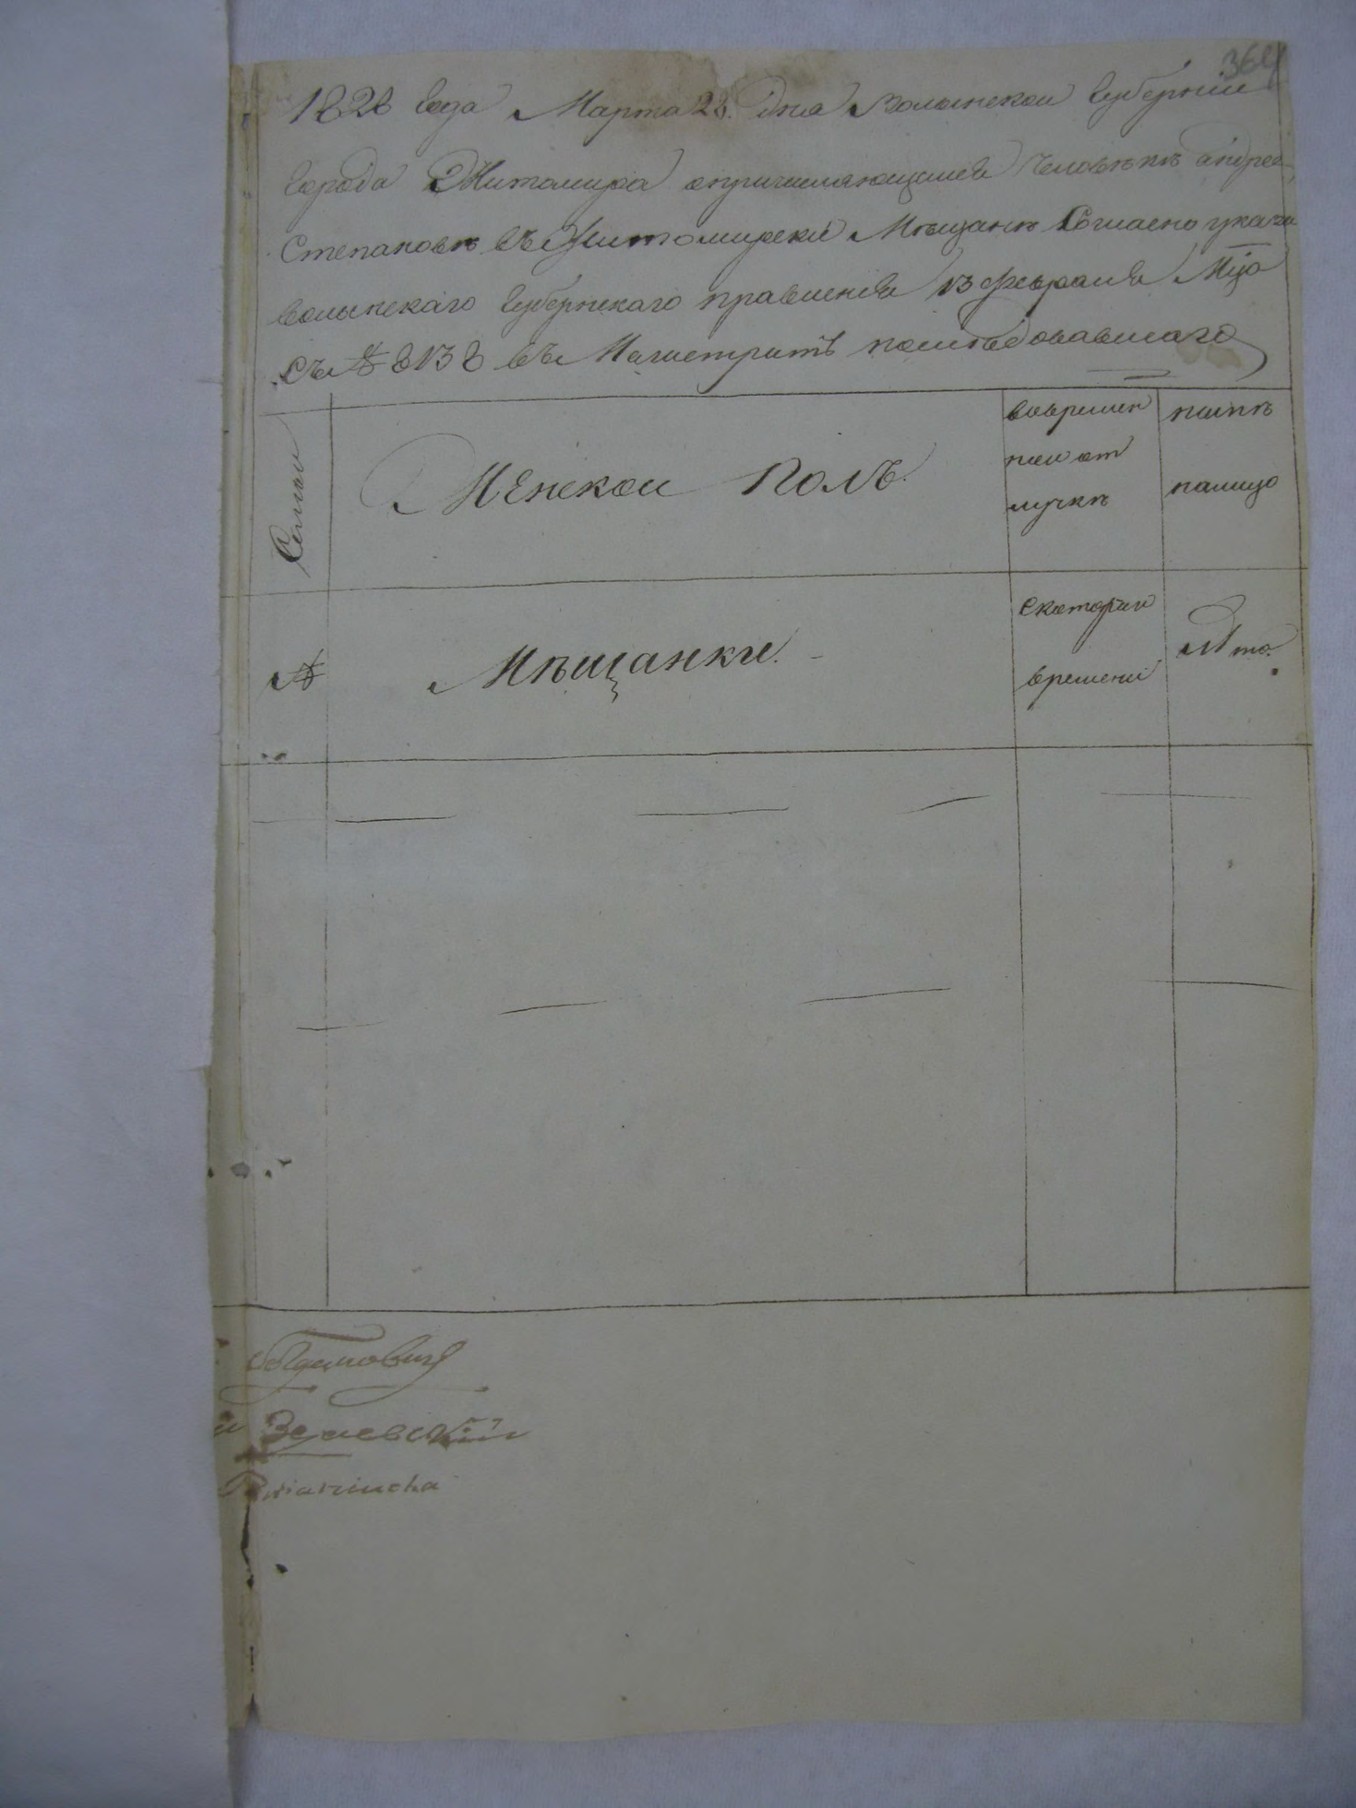 364
1828 года Марта 28. дня Волынской Губернiи
города Житомира о причисляющимся человѣкѣ Андрее
Степановѣ въ Житомирскiи Мѣщанѣ Согласно указа
волынскаго Губернскаго правленiя 13 февраля Мца
съ № 8138 въ Магистратъ послѣдовавшаго
Семьи
Женской Полъ.
во времен
ной от
лучкѣ
нынѣ
на лицо
№
Мѣщанки.
с которого
времени
Лѣта.
Зелевскiй